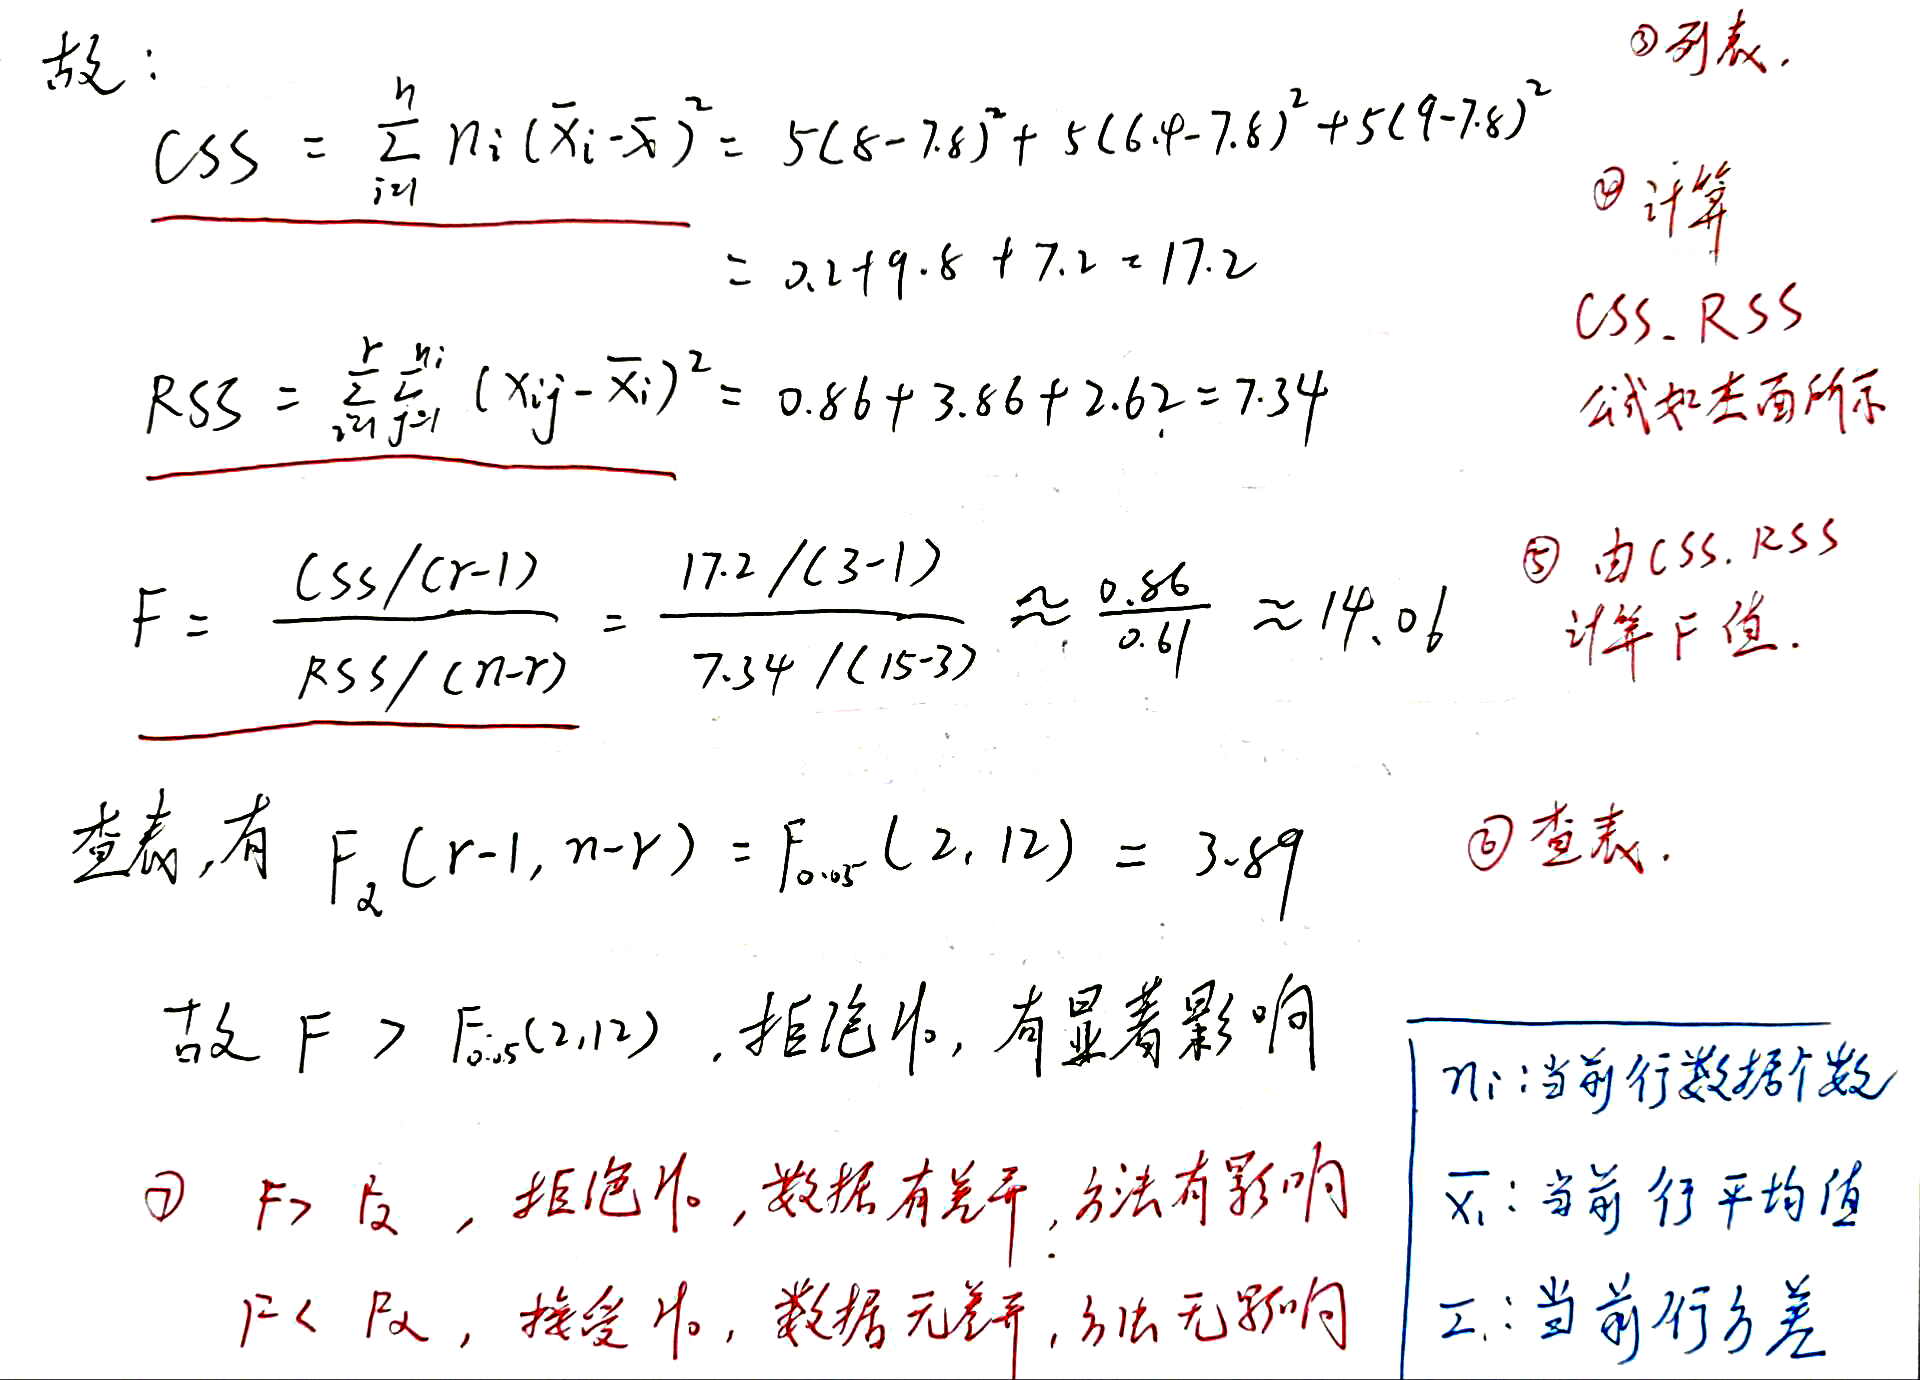 故：
③列表.
CSS = \sum_{i=1}^{n} n_i (\bar{x}_i - \bar{x})^2 = 5(8-7.8)^2 + 5(6.4-7.8)^2 + 5(9-7.8)^2
④计算
= 0.2+9.8+7.2=17.2
CSS、RSS
RSS = \sum_{i=1}^{r} \sum_{j=1}^{n_i} (x_{ij} - \bar{x}_i)^2 = 0.86+3.86+2.62=7.34
公式如左面所示
F = \frac{CSS/(r-1)}{RSS/(n-r)} = \frac{17.2/(3-1)}{7.34/(15-3)} ≈ \frac{0.86}{0.61} ≈ 14.06
⑤ 由CSS.RSS
计算F值.
查表,有 F_α(r-1, n-r) = F_{0.05}(2, 12) = 3.89
⑥查表.
故 F > F_{0.05}(2,12) ,拒绝H₀, 有显著影响
n_i:当前行数据个数
⑦ F> F_α , 拒绝H₀, 数据有差异,方法有影响
\bar{x}_i:当前行平均值
F< F_α, 接受H₀, 数据无差异,方法无影响
Σ_i:当前行方差